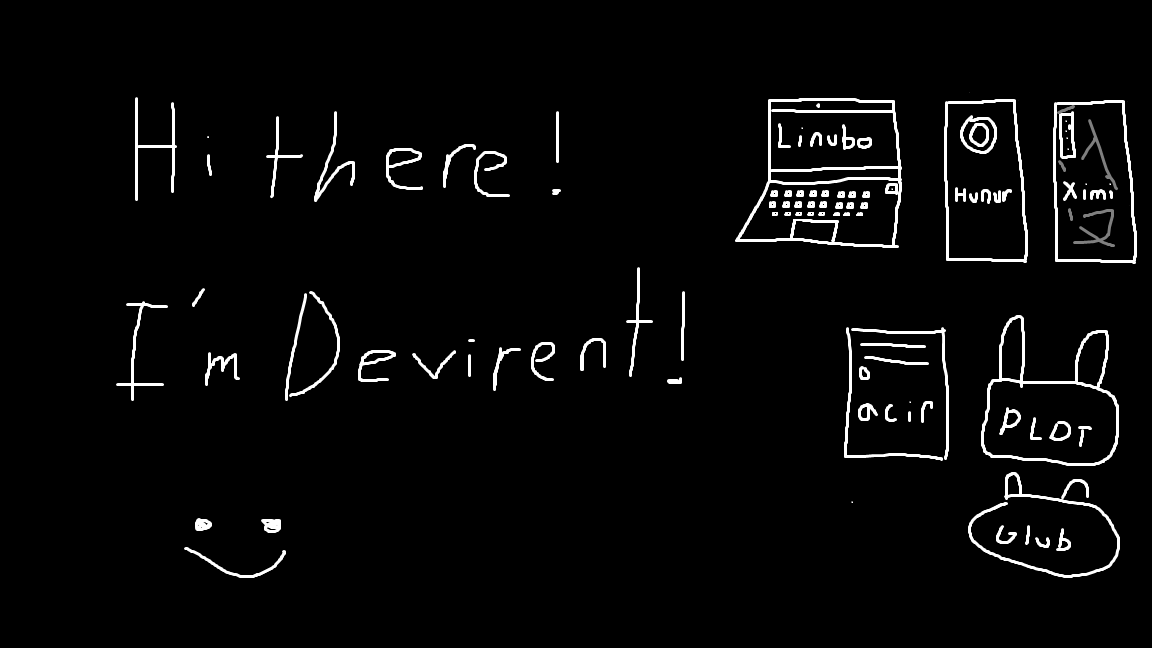 Hi there!
I'm Devirent!
Linubo
Hunur
Ximi
acir
PLDT
Glub